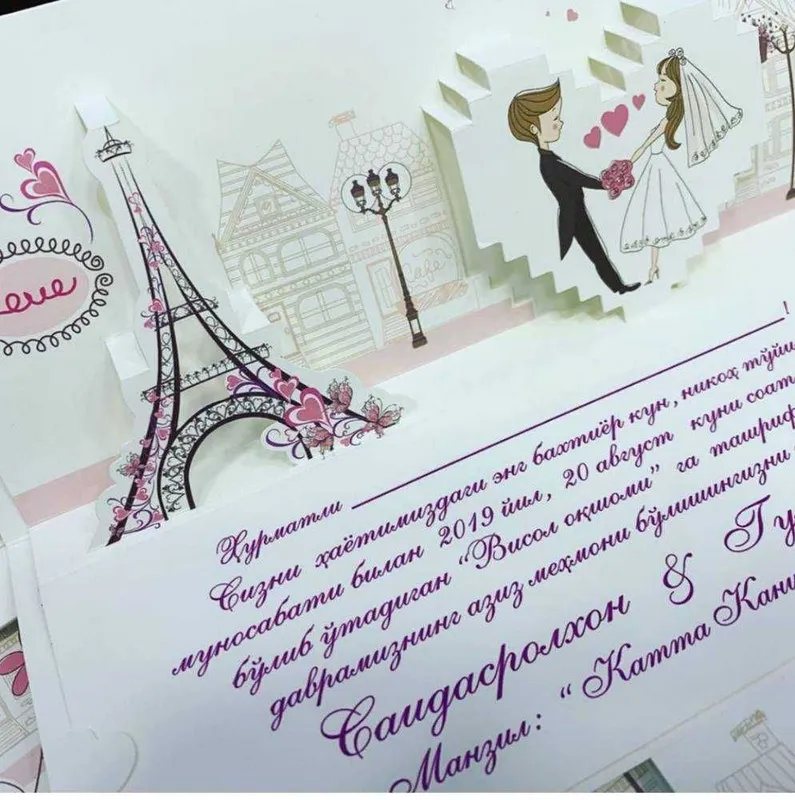 Love
Cafe
Ҳурматли ____________!
Сизни ҳаётимиздаги энг бахтиёр кун, никоҳ тўйи
муносабати билан 2019 йил, 20 август куни соат
бўлиб ўтадиган "Висол оқшоми" га ташриф
даврамизнинг азиз меҳмони бўлишингизни
Саидасролхон & Гу
Манзил: "Катта Кани